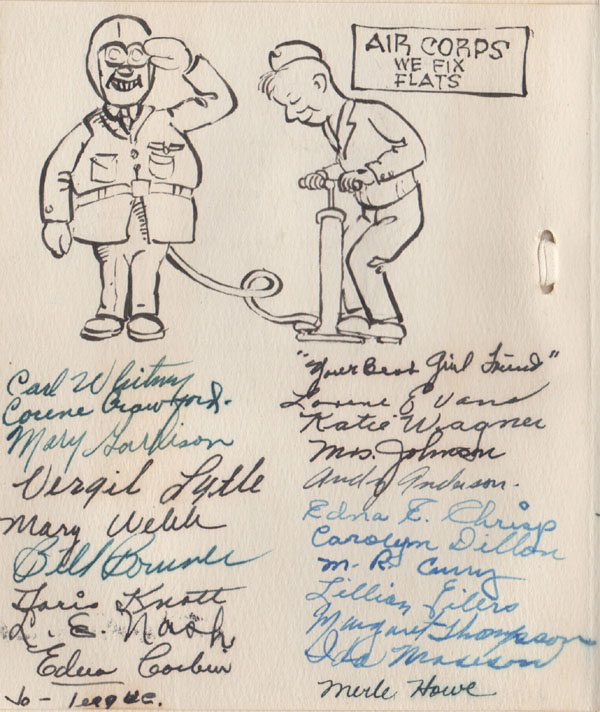 AIR CORPS
WE FIX
FLATS
Carl Whitney
Corene Crawford.
Mary Garlison
Vergil Lytle
Mary Webb
Bill
Doris Knott
L. E. Nash
Edna Corbin
Jo - Teague.
"Your Best Girl Friend"
Lorene Evans
Katie Wagner
Mrs. Johnson
Andy Anderson.
Edna E. Chrisp
Carolyn Dillon
M. R. Curry
Lillian Eilers
Margaret Thompson
Ida Madison
Merle Howe